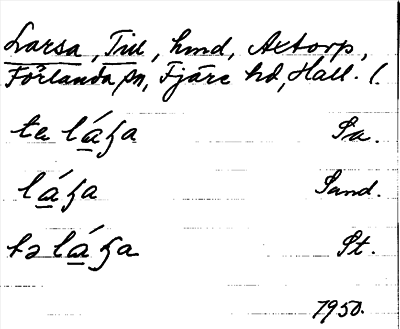 Larsa, Till, hmd, Axtorp,
Förlanda sn, Fjäre hd, Hall. l.
ta láʒa Sa.
láʒa Sand.
tə láʒa St.
1950.